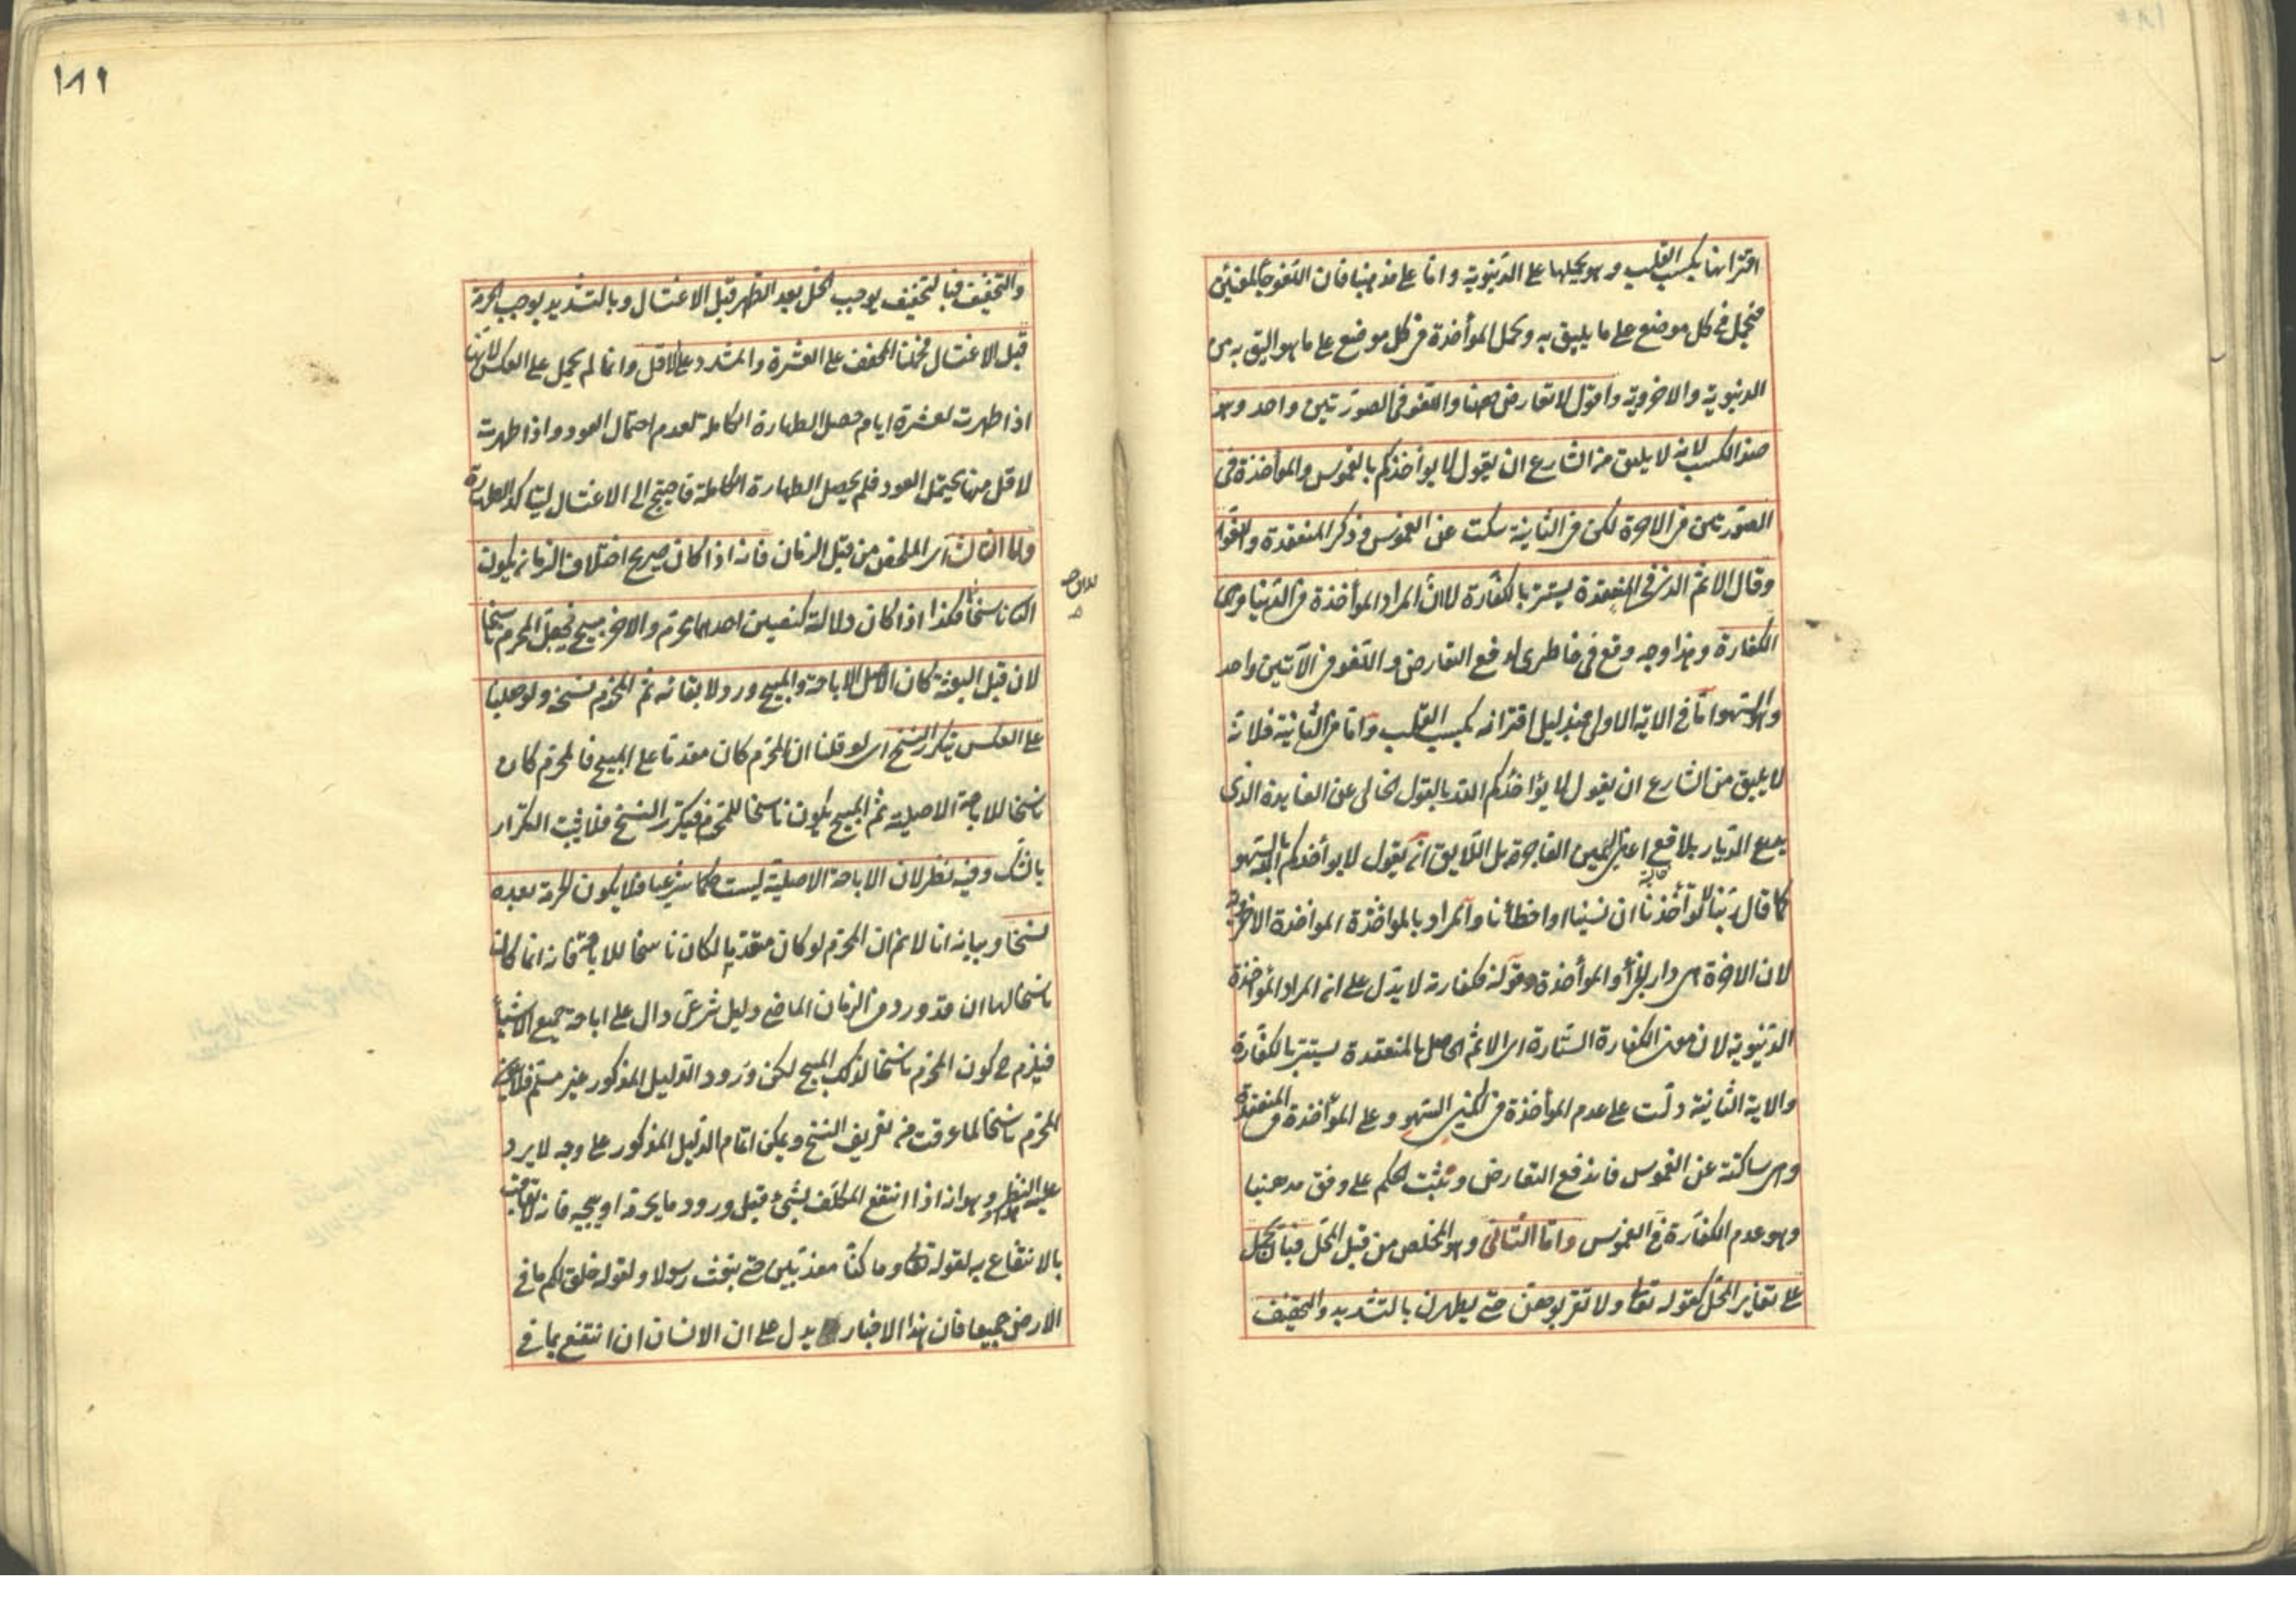 اقترانها بكسب القلب وهو يحملها على الدنيوية واما على مذهبنا فان اللغو جاء لمعنيين
فيحمل في كل موضع على ما يليق به ويحمل المؤاخذة في كل موضع على ما هو اليق به من
الدنيوية والاخروية واقول لا تعارض هنا واللغو في الصورتين واحد وهو
ضد الكسب لانه لا يليق من الشارع ان يقول لا يوأخذكم بالغموس والموأخذة في
الصورتين في الاخرة لكن في الثانية سكت عن الغموس وذكر المنعقدة واللغو
وقال الاثم الذي في المنعقدة يستر بالكفارة لا ان المراد الموأخذة في الدنيا وهي
الكفارة وهذا وجه وقع في خاطري لدفع التعارض واللغو في الآيتين واحد
وهو السهو اما في الاية الاولى فبدليل اقترانه بكسب القلب واما في الثانية فلانه
لا يليق من الشارع ان يقول لا يؤاخذكم الله بالقول الخالي عن الفايدة الذي
يدع الديار بلاقع اعني اليمين الفاجرة بل اللايق ان يقول لا يوأخذكم الله بالسهو
كما قال ربنا لا تؤأخذنا ان نسينا او اخطأنا والمراد بالمواخذة المواخذة الاخروية
لان الاخرة هي دار الجزأ والموأخذة وقوله فكفارته لا يدل على ان المراد المؤاخذة
الدنيوية لان معنى الكفارة الستارة اي الاثم الحاصل بالمنعقدة يستتر بالكفارة
والاية الثانية دلت على عدم الموأخذة في اليمين السهو وعلى الموأخذة في المنعقدة
وهي ساكتة عن الغموس فاندفع التعارض وثبت الحكم على وفق مذهبنا
وهو عدم الكفارة في الغموس واما الثاني وهو المخلص من قبل المحل فبان يحمل
على تغاير المحل كقوله تعالى ولا تقربوهن حتى يطهرن بالتشديد والتخفيف
١٨١
والتخفيف فبالتخفيف يوجب الحل بعد الطهر قبل الاغتسال وبالتشديد يوجب الحرمة
قبل الاغتسال فحملنا المخفف على العشرة والمشدد على الاقل وانما لم يحمل على العكس لانها
اذا طهرت لعشرة ايام حصل الطهارة الكاملة لعدم احتمال العود واذا طهرت
لاقل منها يحتمل العود فلم يحصل الطهارة الكاملة فاحتيج الى الاغتسال ليتاكد الطهارة
واما الثالث اي المخلص من قبل الزمان فانه اذا كان صريح اختلاف الزمان يكون
الثاني ناسخا فكذا اذا كان دلالة كنصين احدهما محرم والاخر مبيح فيجعل المحرم ناسخا
لان قبل البعثة كان الاصل الاباحة والمبيح ورد لابقائه ثم المحرم نسخه ولو جعلنا
على العكس يتكرر النسخ اي لو قلنا ان المحرم كان مقدما على المبيح فالمحرم كان
ناسخا للاباحة الاصلية ثم المبيح يكون ناسخا للمحرم فيتكرر النسخ فلا يثبت التكرار
بالشك وفيه نظر لان الاباحة الاصلية ليست حكما شرعيا فلا يكون الحرمة بعده
نسخا وبيانه انا لا نم ان المحرم لو كان مقدما لكان ناسخا للاباحة فانه انما كان
ناسخا لها ان قد ورد في الزمان الماضي دليل شرعي دال على اباحة جميع الاشيأ
فيلزم ح كون المحرم ناسخا لذلك المبيح لكن ورود الدليل المذكور غير مسلم فلا يكون
المحرم ناسخا لما عرفت من تعريف النسخ ويمكن اتمام الدليل المذكور على وجه لا يرد
عليه النظر وهو انه اذا انتفع المكلف بشئ قبل ورود ما يحرمه او يبيحه فانه لا يعاقب
بالانتفاع به لقوله تعالى وما كنا معذبين حتى نبعث رسولا ولقوله خلق لكم ما في
الارض جميعا فان هذا الاخبار يدل على ان الانسان ان انتفع بما في